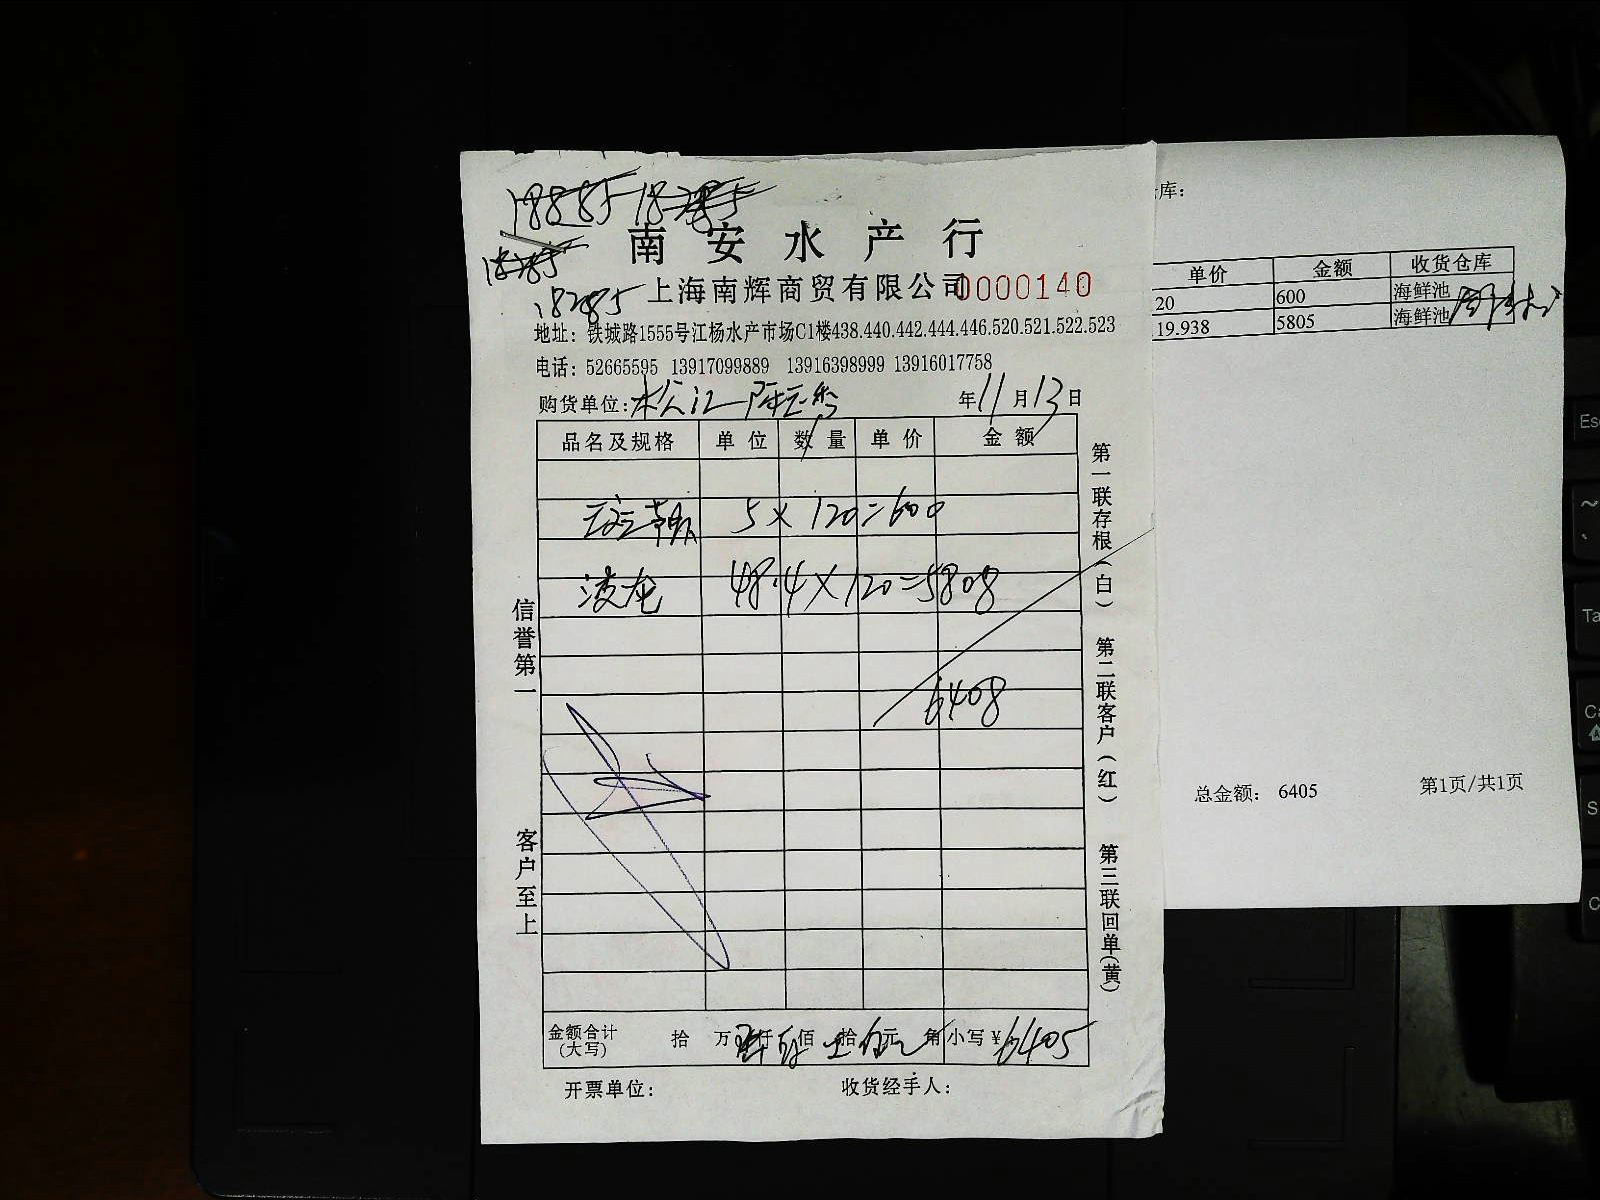 18285
南安水产行
上海南辉商贸有限公司 0000140
地址：铁城路1555号江杨水产市场C1楼438.440.442.444.446.520.521.522.523
电话：52665595 13917099889 13916398999 13916017758
购货单位：松江 年11月13日
品名及规格 单位 数量 单价 金额
5×120=600
48.4×120=5808
6408
金额合计(大写) 拾 万 仟 佰 拾 元 角 小写¥6405
开票单位： 收货经手人：
信誉第一
客户至上
第一联存根(白) 第二联客户(红) 第三联回单(黄)
库：
单价 金额 收货仓库
20 600 海鲜池
19.938 5805 海鲜池
总金额： 6405 第1页/共1页
Esc